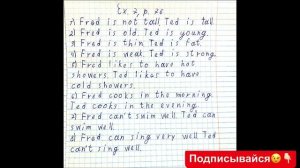 Ex. 2, p. 28
1) Fred is not tall. Ted is tall.
2) Fred is old. Ted is young.
3) Fred is thin. Ted is fat.
4) Fred is weak. Ted is strong.
5) Fred likes to have hot
showers. Ted likes to have
cold showers.
6) Fred cooks in the morning.
Ted cooks in the evening.
7) Fred can't swim well. Ted can
swim well.
8) Fred can sing very well. Ted
can't sing well.
Подписывайся